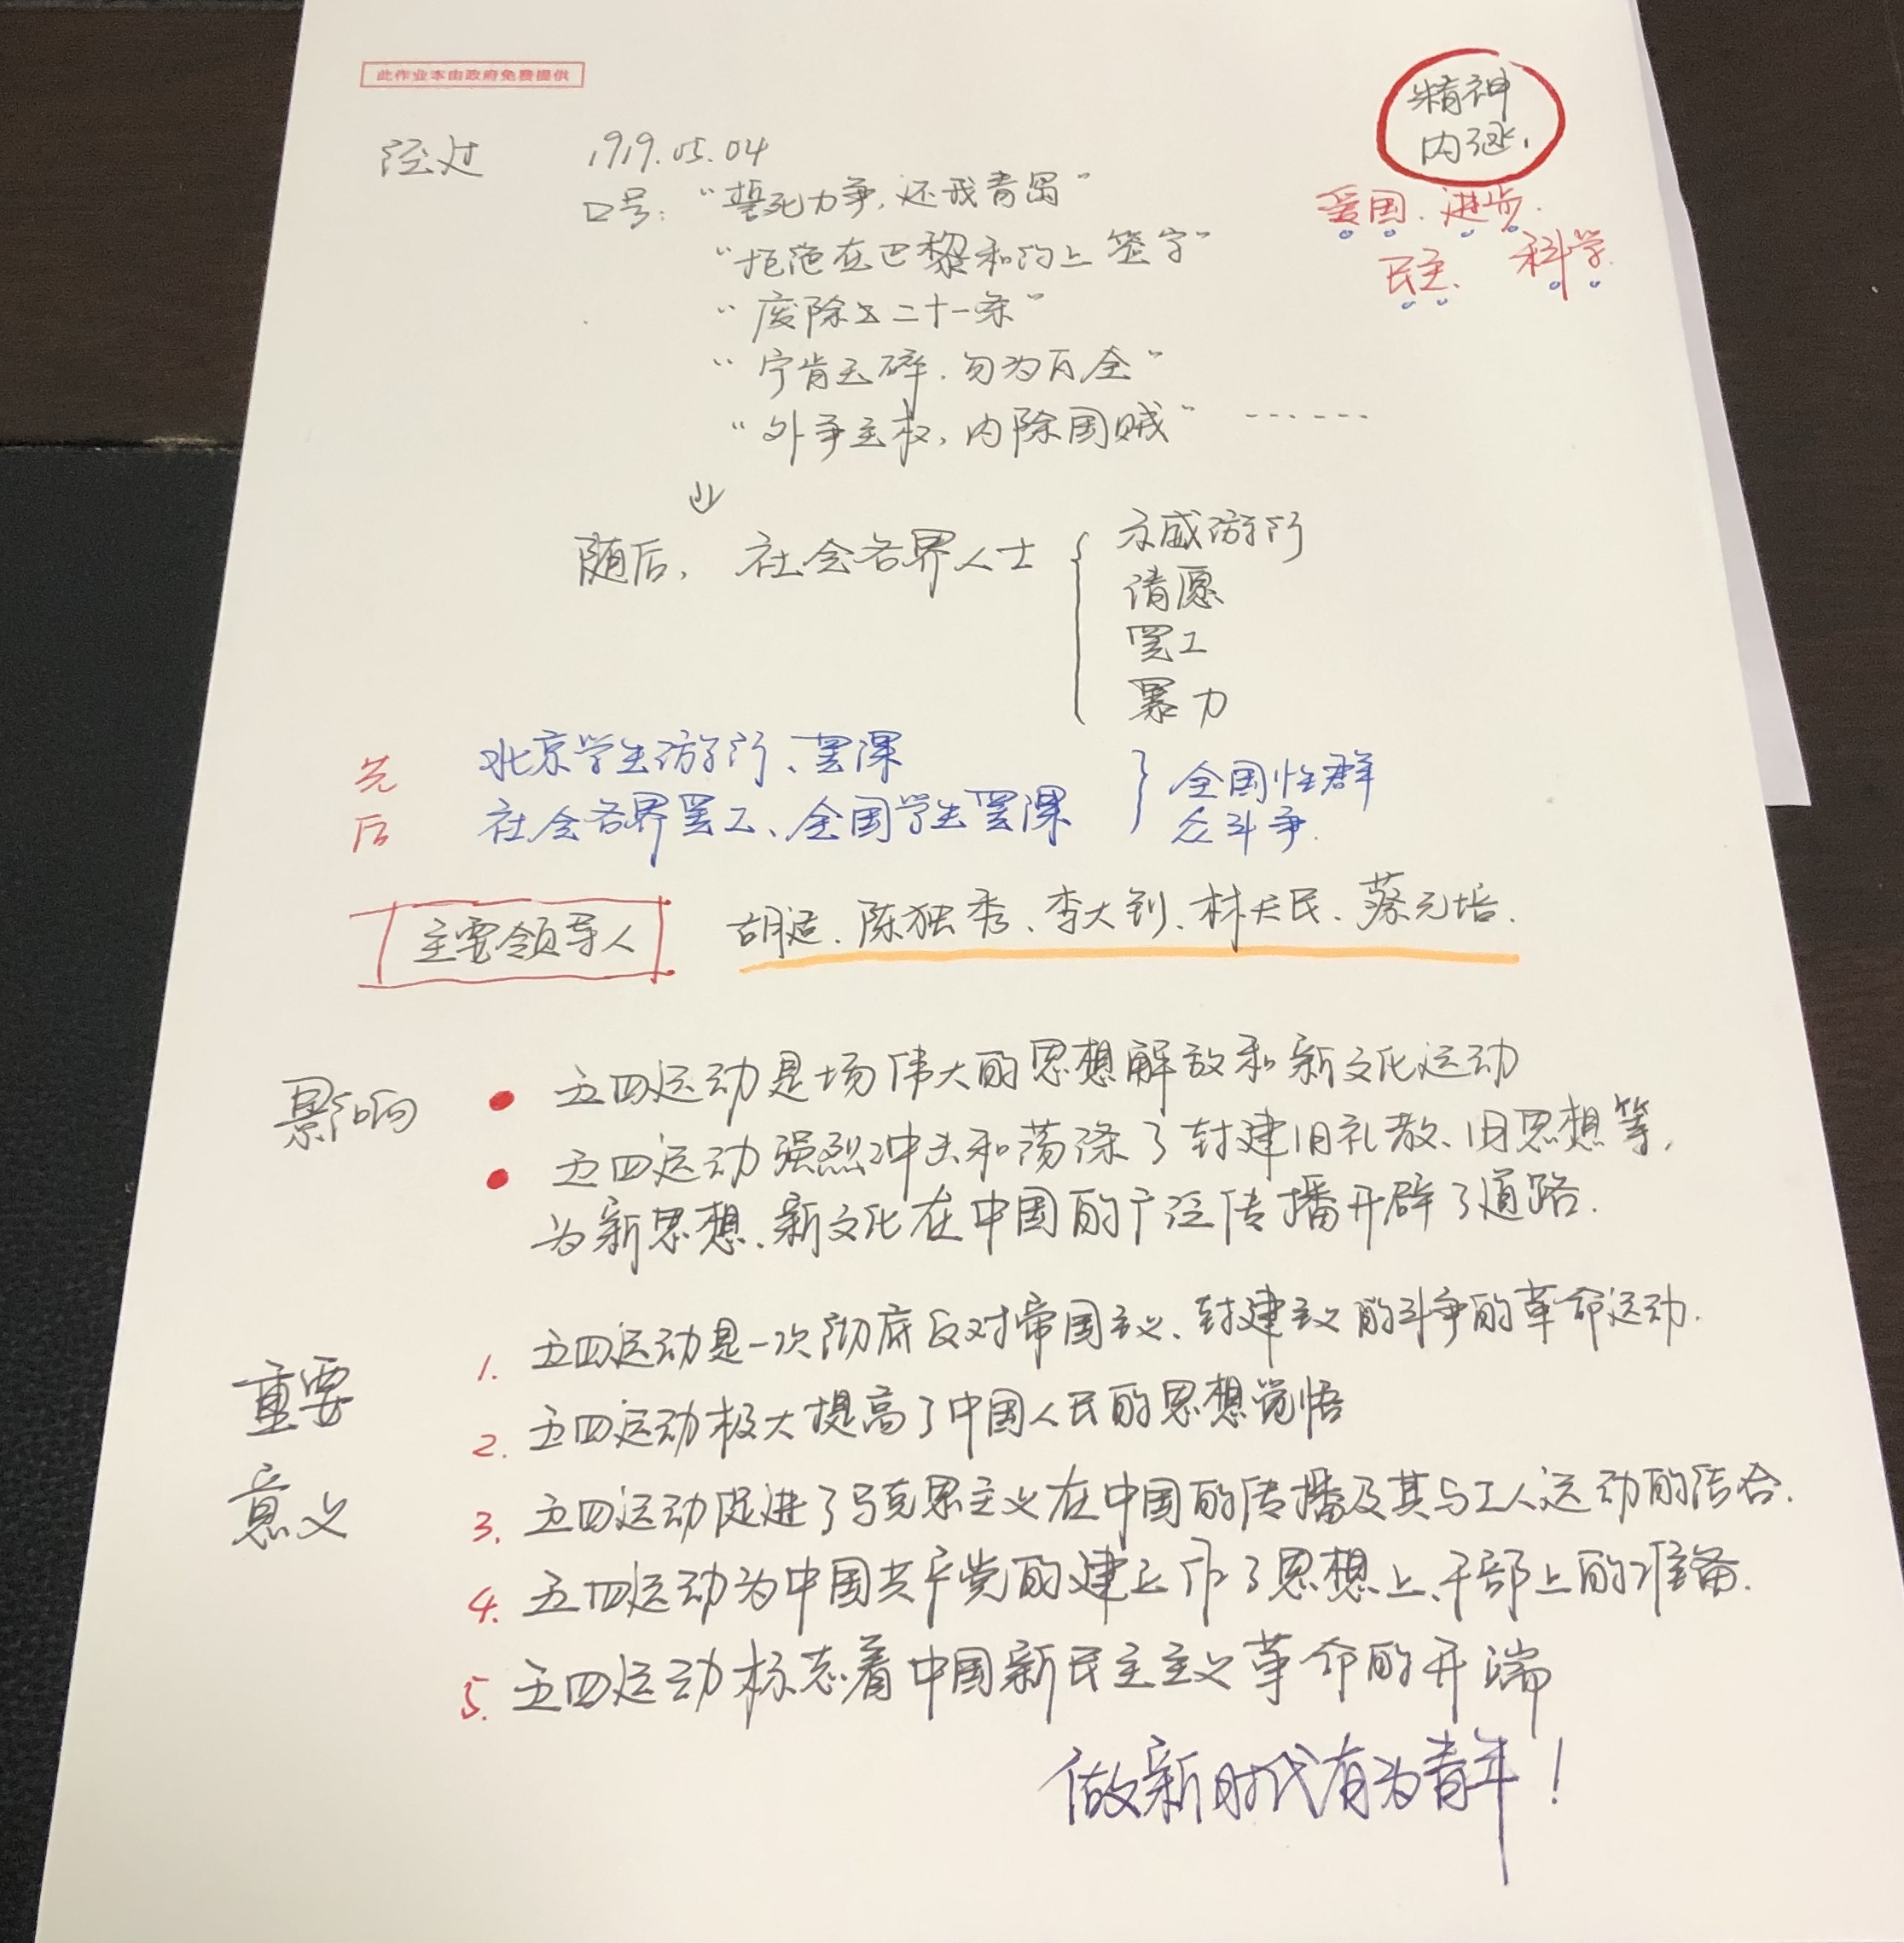 此作业本由政府免费提供
精神
内涵
爱国、进步、
民主、科学
经过 1919.05.04
口号："誓死力争,还我青岛"
"拒绝在巴黎和约上签字"
"废除二十一条"
"宁肯玉碎,勿为瓦全"
"外争主权,内除国贼" ------
随后,社会各界人士
示威游行
请愿
罢工
暴力
先 北京学生游行、罢课
后 社会各界罢工、全国学生罢课
全国性群
众斗争.
主要领导人 胡适、陈独秀、李大钊、林天民、蔡元培.
影响
五四运动是场伟大的思想解放和新文化运动
五四运动强烈冲击和荡涤了封建旧礼教、旧思想等,
为新思想、新文化在中国的广泛传播开辟了道路.
重要
意义
1. 五四运动是一次彻底反对帝国主义、封建主义的斗争的革命运动.
2. 五四运动极大提高了中国人民的思想觉悟
3. 五四运动促进了马克思主义在中国的传播及其与工人运动的结合.
4. 五四运动为中国共产党的建立作了思想上、干部上的准备.
5. 五四运动标志着中国新民主主义革命的开端
做新时代有为青年!